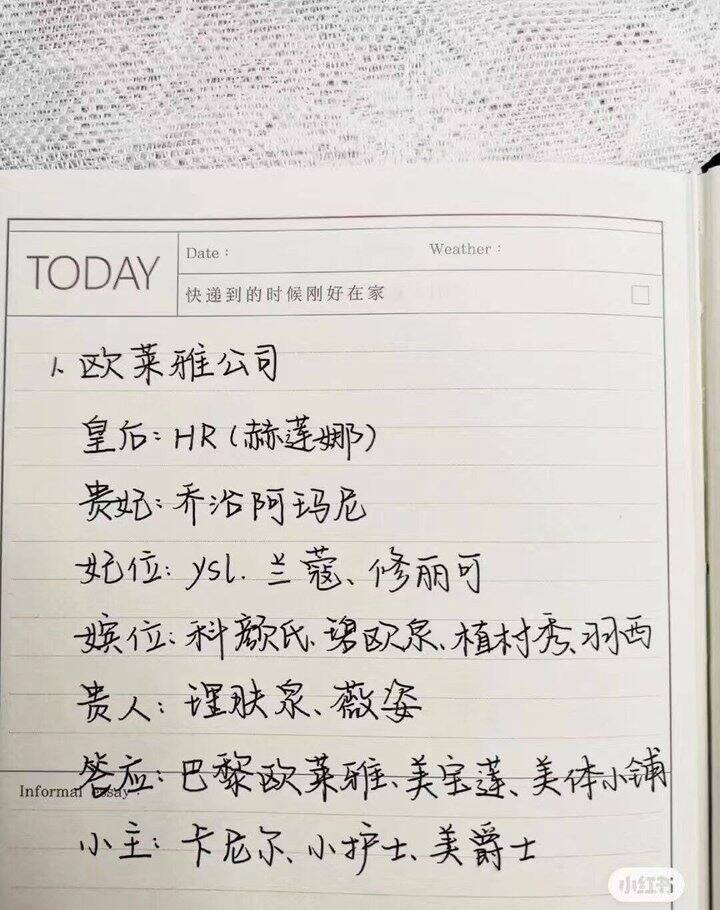 TODAY
Date：
Weather：
快递到的时候刚好在家
1、欧莱雅公司
皇后：HR（赫莲娜）
贵妃：乔治阿玛尼
妃位：ysl、兰蔻、修丽可
嫔位：科颜氏、碧欧泉、植村秀、羽西
贵人：理肤泉、薇姿
答应：巴黎欧莱雅、美宝莲、美体小铺
Informal essay：
小主：卡尼尔、小护士、美爵士
小红书